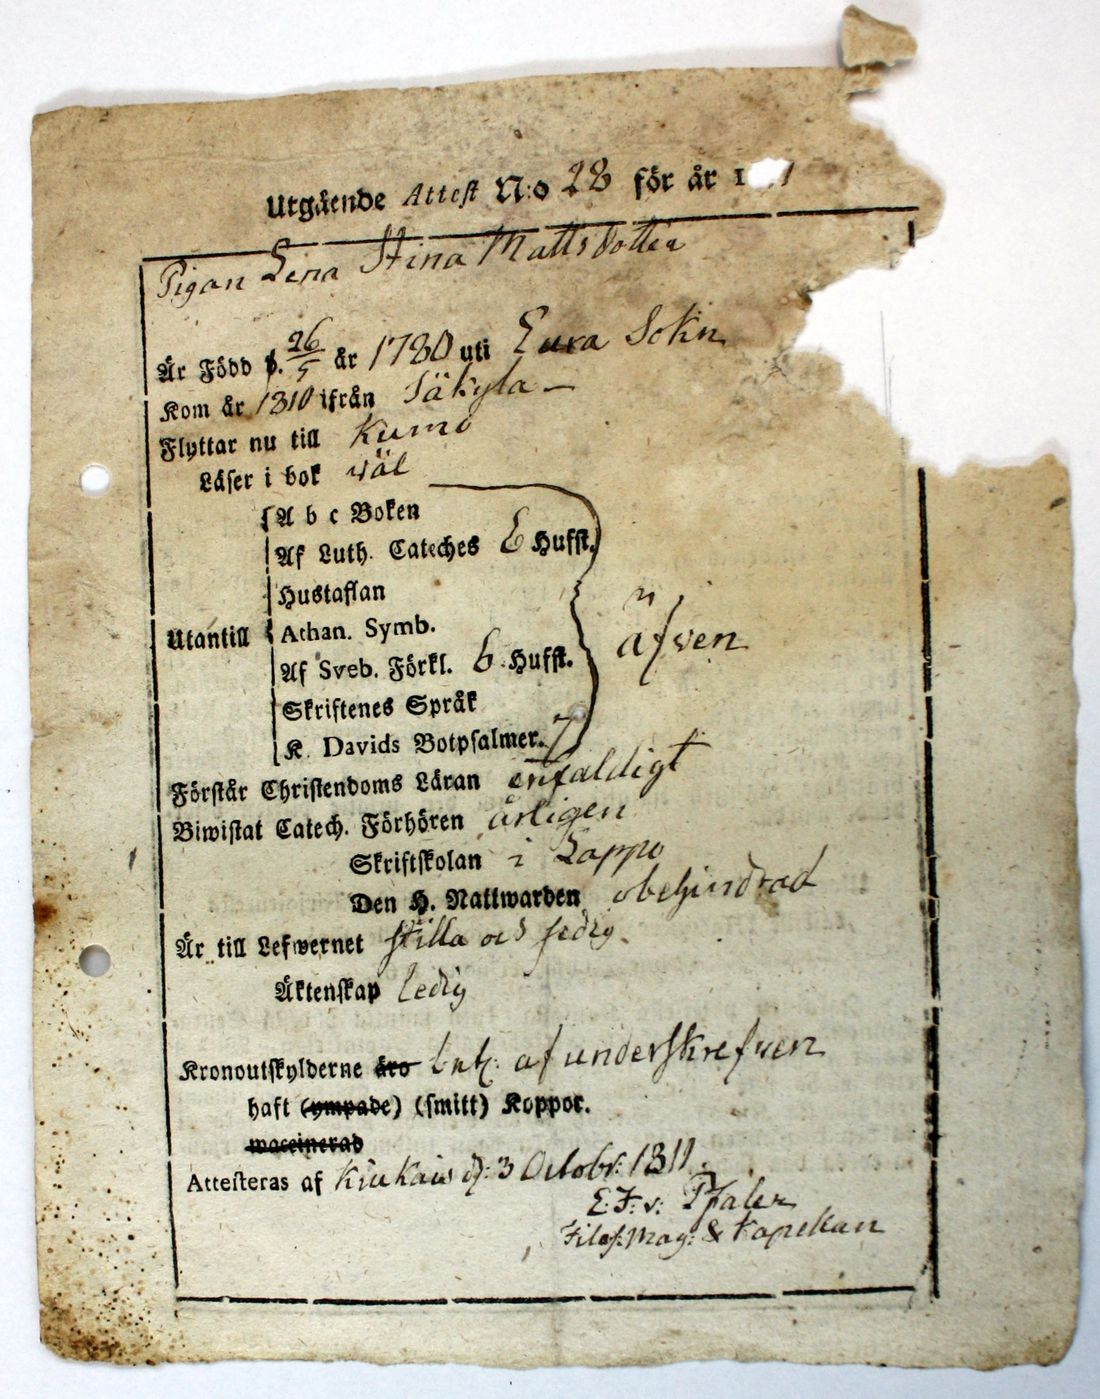 Utgående Attest N:o 28 för år 1 1
Pigan Lena Stina Mattsdotter
Är Född d. 26/5 år 1780 uti Eura Sokn
Kom år 1810 ifrån Säkyla —
Flyttar nu till Kumo
Läser i bok wäl
A b c Boken
Af Luth. Cateches 6 Hufst.
Hustaflan
Utantill Athan. Symb. äfven
Af Sveb. Förkl. 6 Hufst.
Skriftenes Språk
K. Davids Botpsalmer. 7
Förstår Christendoms Läran enfaldigt
Biwistat Catech. Förhören årligen
Skriftskolan i Lappo
Den H. Nattwarden obehindrad
Är till Lefwernet stilla och sedig
Äktenskap ledig
Kronoutskylderne äro bet. af underskrefven
haft (ympade) (smitt) Koppor.
waccinerad
Attesteras af Kiukais d: 3 Octobr: 1811.
E. F. v: Pfaler
Filos: Mag: & Kapellan